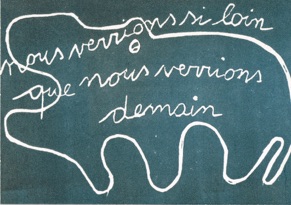 nous verrions si loin
que nous verrions
demain